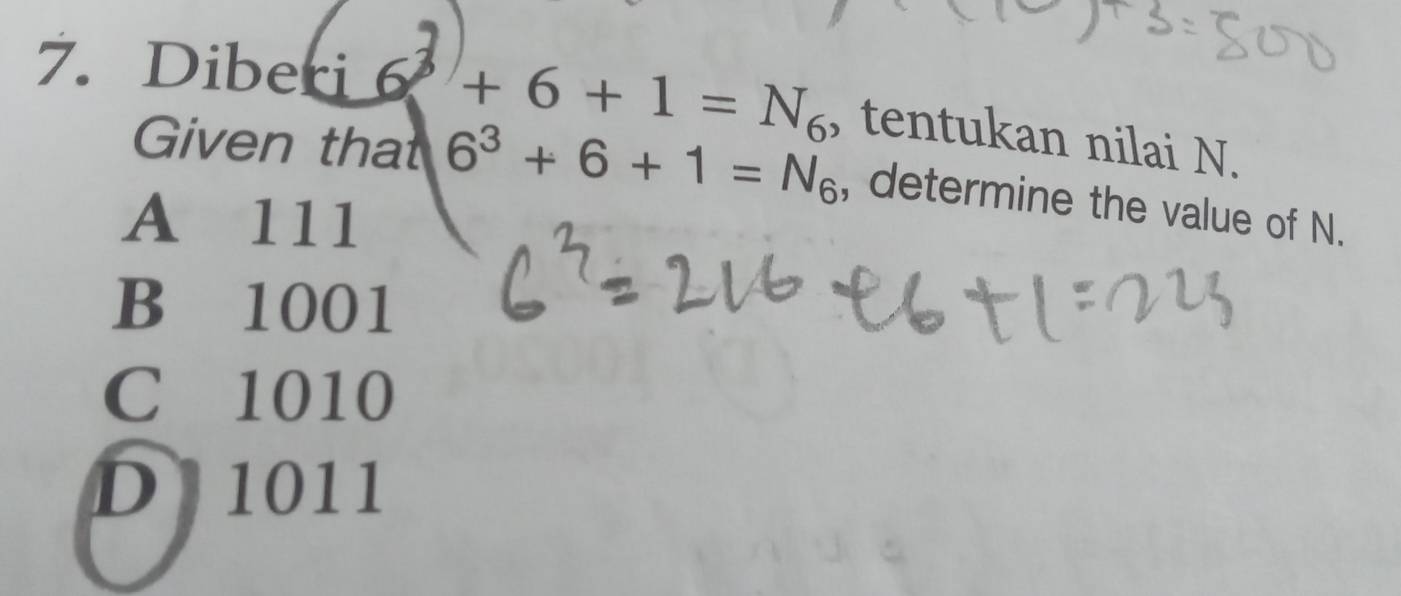 + 3 = 500
7. Diberi 6³ + 6 + 1 = N₆, tentukan nilai N.
Given that 6³ + 6 + 1 = N₆, determine the value of N.
A 111
B 1001
C 1010
D 1011
6³ = 216 + 6 + 1 = 223